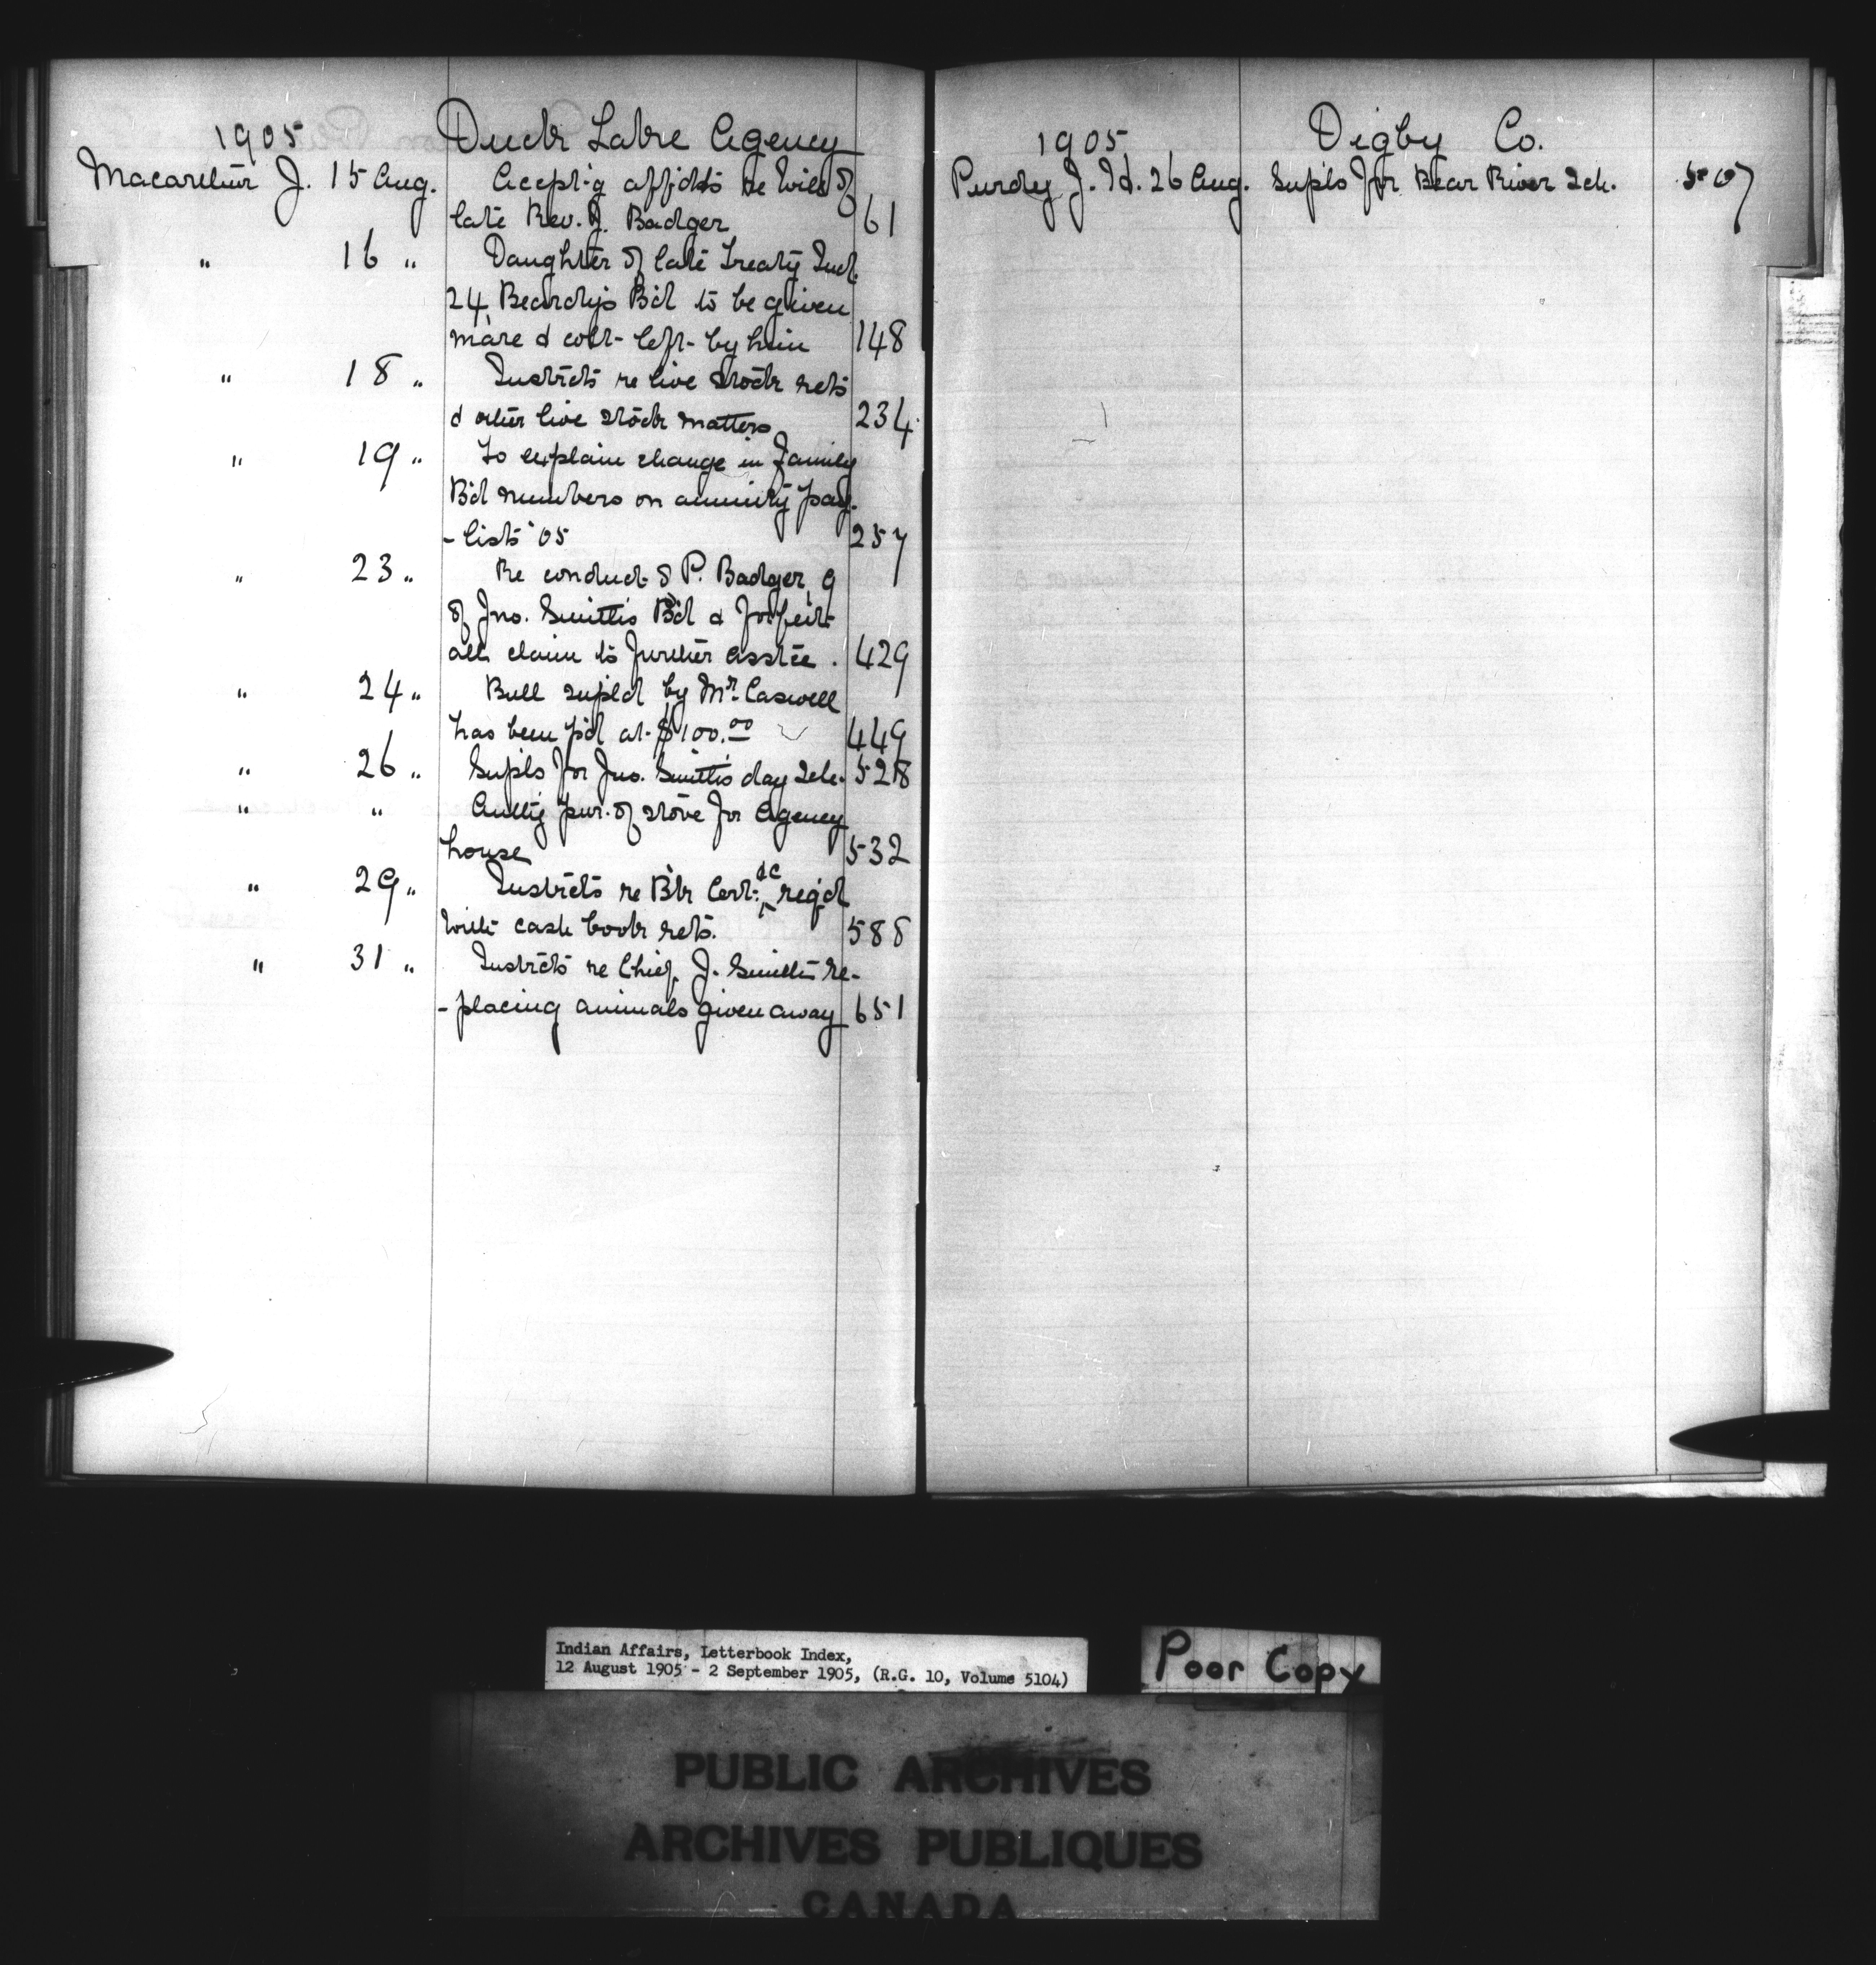 1905 Duck Lake Agency
Macarthur J. 15 Aug. Accept'g affidts re Will of
late Rev. J. Badger 61
" 16 " Daughter of late Treaty Ind.
24, Beardy's B'd to be given
mare & colt left by him 148
" 18 " Instrcts re live stock rets
& other live stock matters 234
" 19 " To explain change in Family
B'd numbers on annuity pay-
- lists '05 257
" 23 " Re conduct of P. Badger, 9
of Jno. Smith's B'd & forfeit
all claim to further asstce. 429
" 24 " Bull supld by Mr. Caswell
has been p'd at $100.00 449
" 26 " Supls for Jno. Smith's day Sch. 528
" " Auth'g pur. of stove for Agency
house 532
" 29 " Instrcts re B'k Cert. &c req'd
with cash book rets. 588
" 31 " Instrcts re Chief J. Smith re-
- placing animals given away 651
1905 Digby Co.
Purdy J. H. 26 Aug. Supls for Bear River Sch. 507
Indian Affairs, Letterbook Index,
12 August 1905 - 2 September 1905, (R.G. 10, Volume 5104)
Poor Copy
PUBLIC ARCHIVES
ARCHIVES PUBLIQUES
CANADA